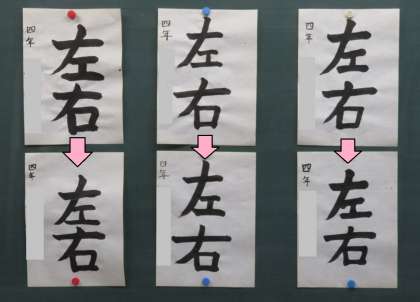 四年
左右
四年
左右
四年
左右
四年
左右
四年
左右
四年
左右